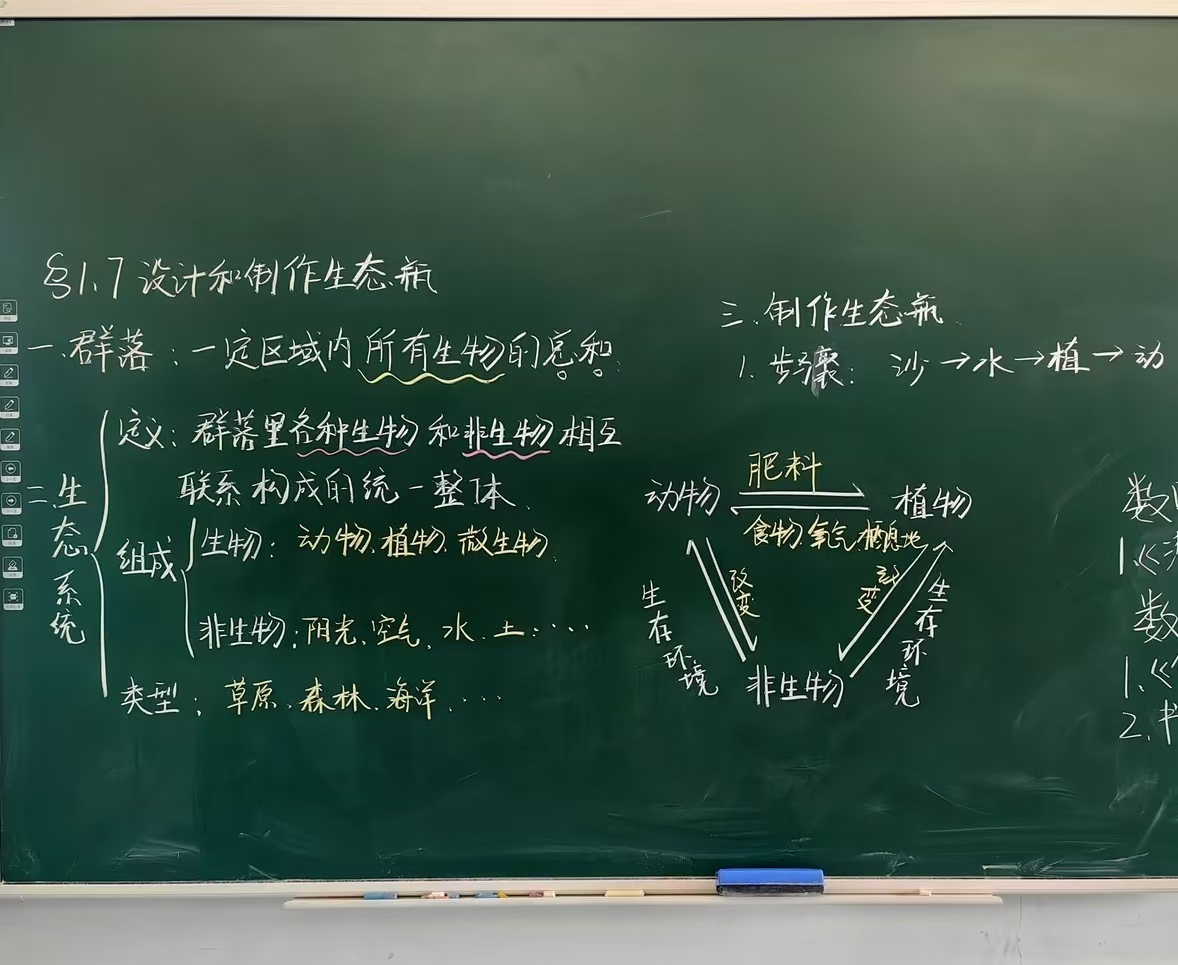 §1.7 设计和制作生态瓶
一.群落：一定区域内所有生物的总和.
二.生态系统
定义：群落里各种生物和非生物相互
联系构成的统一整体.
组成
生物：动物.植物.微生物.
非生物：阳光.空气.水.土....
类型：草原.森林.海洋....
三.制作生态瓶.
1.步骤：沙→水→植→动
肥料
动物 植物
食物.氧气.栖息地
改变
改变
生存环境
生存环境
非生物
数
1.《
数
1.《
2.